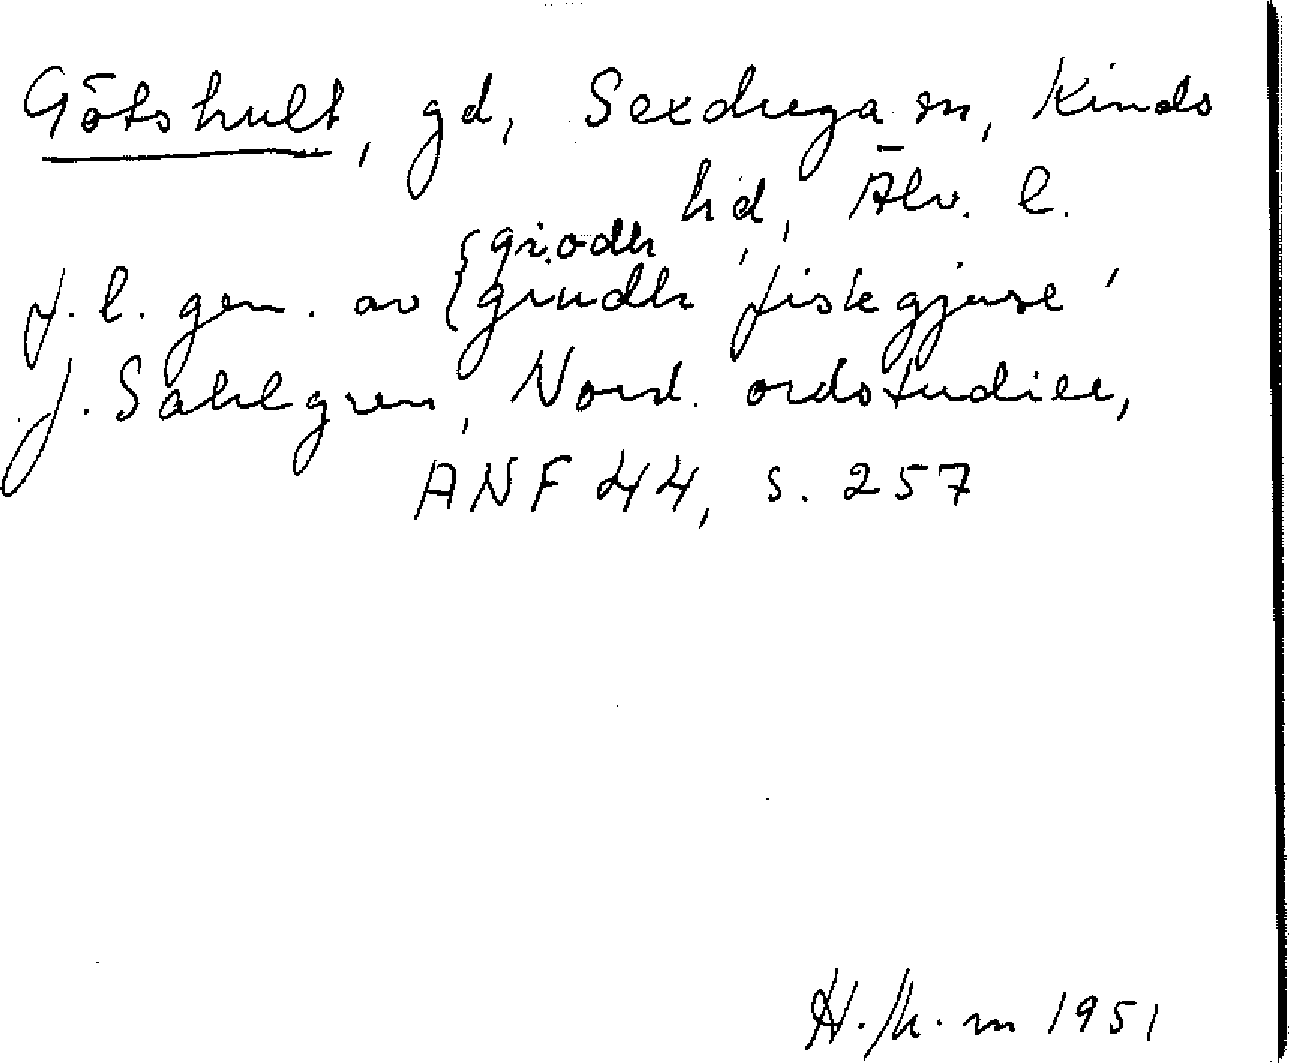 Götshult, gd, Sexdrega sn, Kinds
hd, Älv. l.
f. l. gen. av { griodh
{ griudh 'fiskgjuse'
J. Sahlgren, Nord. ordstudier,
ANF 44, s. 257
1951